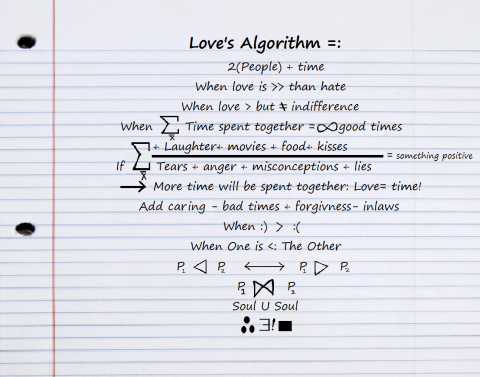 Love's Algorithm =:
2(People) + time
When love is >> than hate
When love > but ≠ indifference
When ∑ x Time spent together = ∞ good times
+ Laughter+ movies + food+ kisses
If ∑ x̄ = something positive
Tears + anger + misconceptions + lies
→ More time will be spent together: Love= time!
Add caring - bad times + forgivness- inlaws
When :) > :(
When One is <: The Other
P₁ ◁ P₂ ⟷ P₁ ▷ P₂
P₁ ⋈ P₂
Soul U Soul
∴ ∃! ■